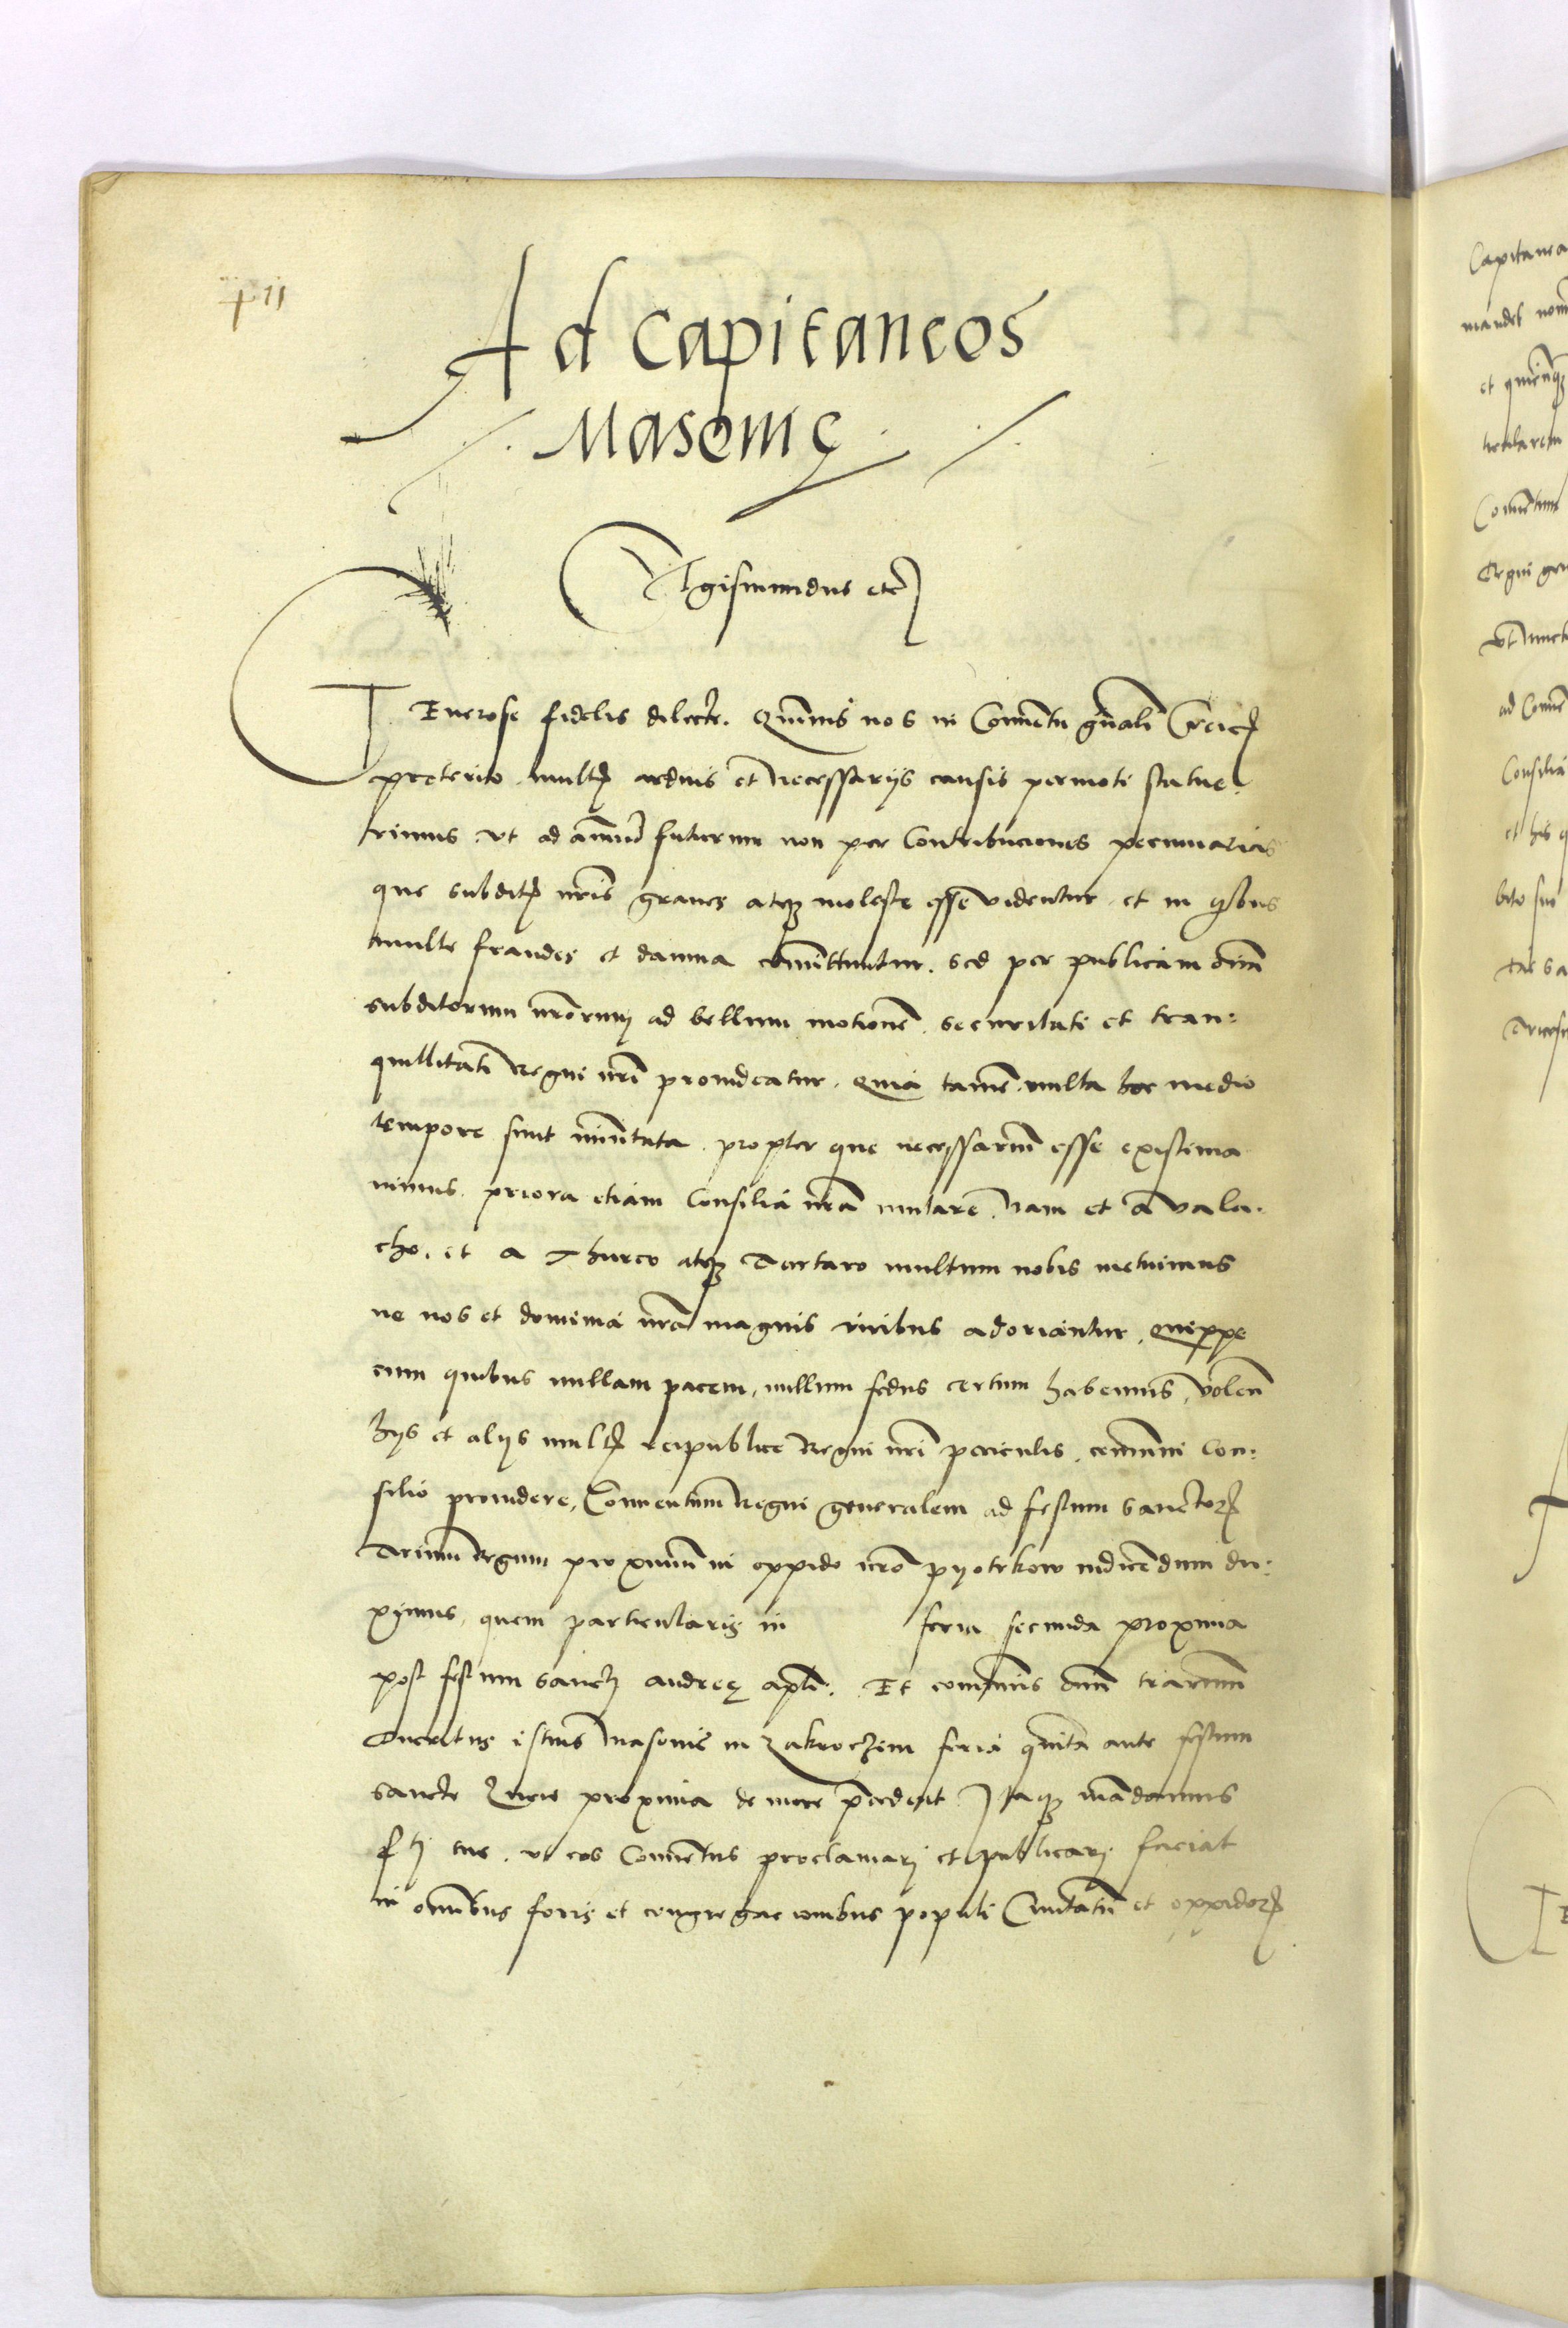 Ad capitaneos
Masovię
Sigismundus etc
Generose fidelis dilecte. Quamvis nos in Conventu gnali Crac
preterito multis arduis et necessariis causis permoti statue-
rimus ut ad annum futurum non per Contribuciones pecuniarias
que subditis nris graves atque moleste esse videntur et in quibus
multe fraudes et damna committuntur. sed per publicam omnium
subditorum nrorum ad bellum motionem. securitati et tran:
quillitati Regni nri provideatur. Quia tamen multa hoc medio
tempore sunt immutata. propter que necessarium esse existima
vimus. priora etiam Consilia nra mutare. Nam et a Vala-
cho. et a Thurco atque Tartaro multum nobis metuimus
ne nos et dominia nra magnis viribus adoriantur. Quippe
cum quibus nullam pacem, nullum fedus certum habemus, volen
hys et alys multis reipublice Regni nri periculis. communi Con:
silio providere, Conventum Regni generalem ad festum sanctorum
Trium Regum proximum in oppido nro pyotrkow indicendum du:
ximus, quem particularis in feria secunda proxima
post festum sancti andreę apli. Et communis omnium trarum
Ducatus istius Masovie in Zakroczim feria quinta ante festum
sancte Lucie proxima de more precedent. Itaque mandamus
f ti tue. ut eos Conventus proclamari et publicari faciat
in omnibus foris et congregacionibus populi Civitatum et oppidorum